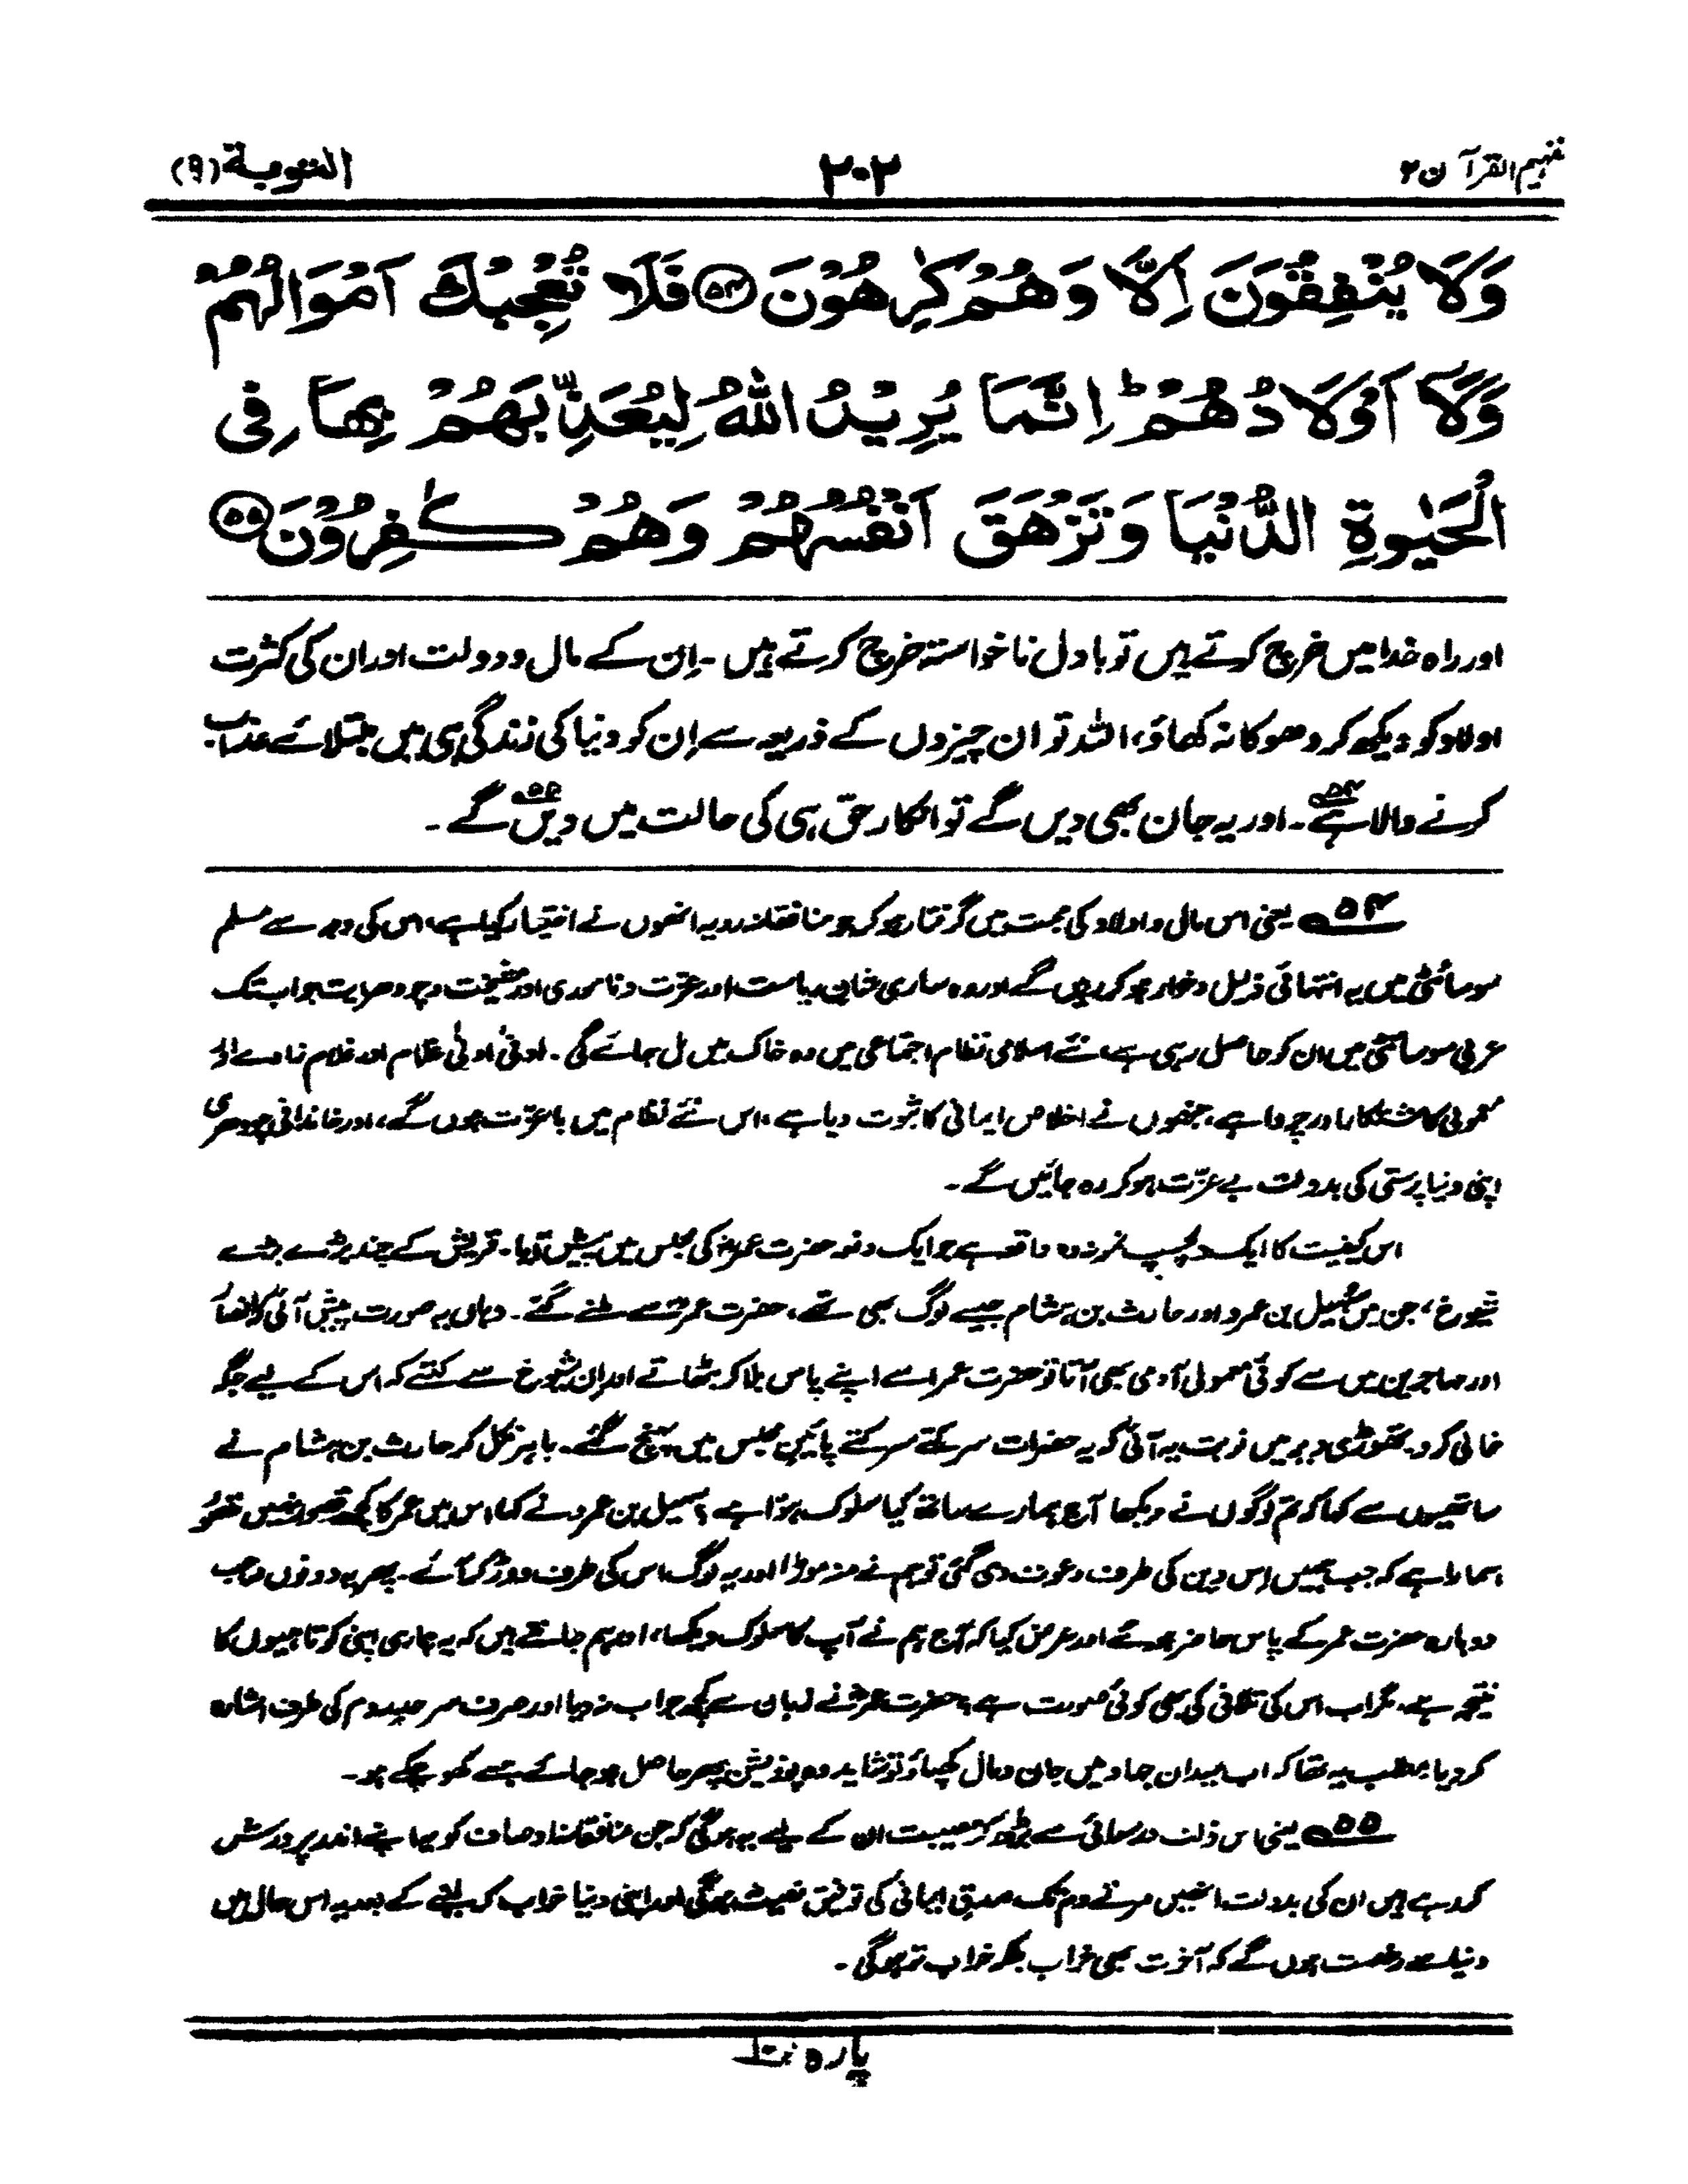 تفہیم القرآن ۲
۲۰۲
التوبة (۹)
وَلَا يُنْفِقُوْنَ اِلَّا وَهُمْ كٰرِهُوْنَ ﴿۵۴﴾ فَلَا تُعْجِبْكَ اَمْوَالُهُمْ
وَلَآ اَوْلَادُهُمْ ؕ اِنَّمَا يُرِيْدُ اللّٰهُ لِيُعَذِّبَهُمْ بِهَا فِى
الْحَيٰوةِ الدُّنْيَا وَتَزْهَقَ اَنْفُسُهُمْ وَهُمْ كٰفِرُوْنَ ﴿۵۵﴾
اور راہ خدا میں خرچ کرتے ہیں تو بادل ناخواستہ خرچ کرتے ہیں ۔ اِن کے مال و دولت اور ان کی کثرت
اولاد کو دیکھ کر دھوکا نہ کھاؤ، اللہ تو ان چیزوں کے ذریعہ سے اِن کو دنیا کی زندگی ہی میں مبتلائے عذاب
کرنے والا ہے۵۴ ۔ اور یہ جان بھی دیں گے تو انکار حقّ ہی کی حالت میں دیں۵۵ گے ۔
۵۴ یعنی اس مال و اولاد کی محبت میں گرفتار ہو کر جو منافقانہ رویہ انھوں نے اختیار کیا ہے، اس کی وجہ سے مسلم
سوسائٹی میں یہ انتہائی ذلیل و خوار ہو کر رہیں گے اور وہ ساری شان ریاست اور عزّت و ناموری اور مشیخت و چودھراہٹ جو اب تک
عربی سوسائٹی میں ان کو حاصل رہی ہے، نئے اسلامی نظام اجتماعی میں وہ خاک میں مل جائے گی ۔ ادنیٰ ادنیٰ غلام اور غلام زادے اور
معمولی کاشتکار اور چرواہے، جنھوں نے اخلاص ایمانی کا ثبوت دیا ہے، اس نئے نظام میں باعزّت ہوں گے، اور خاندانی چودھری
اپنی دنیا پرستی کی بدولت بے عزّت ہو کر رہ جائیں گے ۔
اس کیفیت کا ایک دلچسپ نمونہ وہ واقعہ ہے جو ایک دفعہ حضرت عمرؓ کی مجلس میں پیش آیا ۔ قریش کے چند بڑے بڑے
شیوخ، جن میں سُہیل بن عمرو اور حارث بن ہشام جیسے لوگ بھی تھے، حضرت عمرؓ سے ملنے گئے ۔ وہاں یہ صورت پیش آئی کہ انصار
اور مہاجرین میں سے کوئی معمولی آدمی بھی آتا تو حضرت عمر اسے اپنے پاس بلا کر بٹھاتے اور ان شیوخ سے کہتے کہ اس کے لیے جگہ
خالی کرو ۔ تھوڑی دیر میں نوبت یہ آئی کہ یہ حضرات سرکتے سرکتے پائینِ مجلس میں پہنچ گئے ۔ باہر نکل کر حارث بن ہشام نے
ساتھیوں سے کہا کہ تم لوگوں نے دیکھا آج ہمارے ساتھ کیا سلوک ہوا ہے؟ سہیل بن عمرو نے کہا، اس میں عمر کا کچھ قصور نہیں، قصور
ہمارا ہے کہ جب ہمیں اِس دین کی طرف دعوت دی گئی تو ہم نے منہ موڑا اور یہ لوگ اس کی طرف دوڑ کر آئے ۔ پھر یہ دونوں صاحب
دوبارہ حضرت عمر کے پاس حاضر ہوئے اور عرض کیا کہ آج ہم نے آپ کا سلوک دیکھا، اور ہم جانتے ہیں کہ یہ ہماری اپنی کوتاہیوں کا
نتیجہ ہے، مگر اب اس کی تلافی کی بھی کوئی صورت ہے؟ حضرت عمرؓ نے زبان سے کچھ جواب نہ دیا اور صرف سرحد روم کی طرف اشارہ
کر دیا ۔ مطلب یہ تھا کہ اب میدان جہاد میں جان و مال کھپاؤ تو شاید وہ پوزیشن پھر حاصل ہو جائے جسے کھو چکے ہو ۔
۵۵ یعنی اس ذلت و رسوائی سے بڑھ کر مصیبت ان کے لیے یہ ہوگی کہ جن منافقانہ اوصاف کو یہ اپنے اندر پرورش
کر رہے ہیں ان کی بدولت انھیں مرتے دم تک صدق ایمانی کی توفیق نصیب نہ ہوگی اور اپنی دنیا خراب کر لینے کے بعد یہ اس حال میں
دنیا سے رخصت ہوں گے کہ آخرت بھی خراب بلکہ خراب تر ہوگی ۔